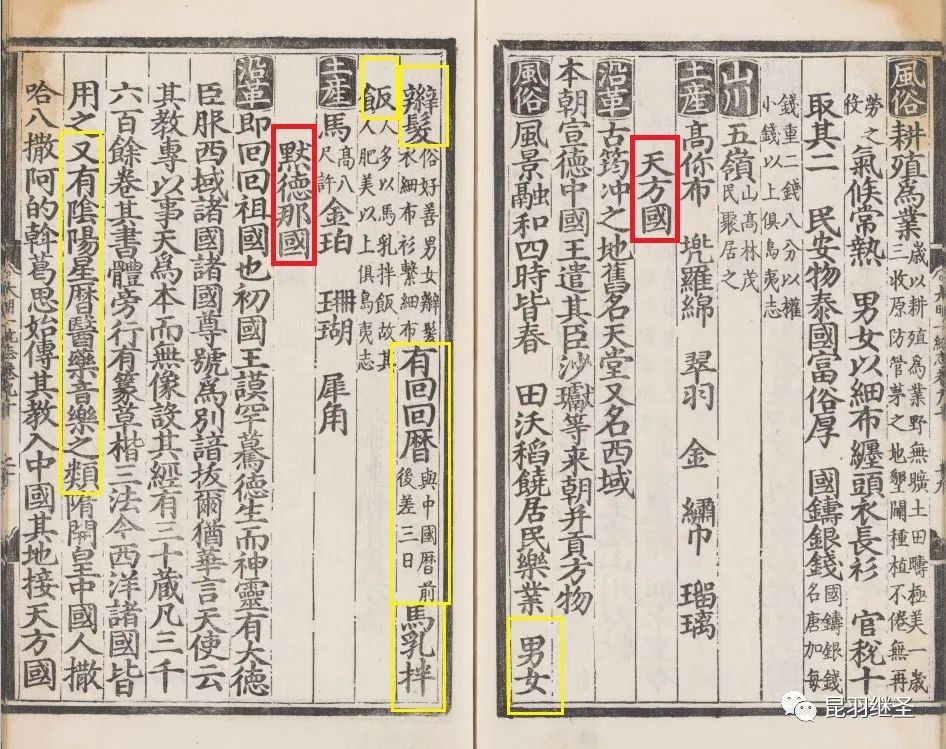 風俗 耕殖爲業 歲以耕殖爲業野無曠土田疇極美一歲三收原防管茅之地墾闢種植不倦無再
勞之役 氣候常熱 男女以細布纏頭衣長衫 官税十
取其二 民安物泰國富俗厚 國鑄銀錢 國鑄銀錢名唐加每
錢重二錢八分以權小錢以上俱島夷志
山川 五嶺 山高林茂民聚居之
土産 高你布 兠羅綿 翠羽 金 繡巾 瑠璃
天方國
沿革 古筠沖之地舊名天堂又名西域
本朝宣德中國王遣其臣沙瓛等来朝并貢方物
風俗 風景融和四時皆春 田沃稻饒居民樂業 男女
辮髮 俗好善男女辮髮衣細布衫繫細布 有回回暦 與中國暦前後差三日 馬乳拌
飯 人多以馬乳拌飯故其人肥美以上俱島夷志
土産 馬 高八尺許 金珀 珊瑚 犀角
默德那國
沿革 即回回祖國也初國王謨罕驀德生而神靈有大德
臣服西域諸國諸國尊號爲别諳拔爾猶華言天使云
其教專以事天爲本而無像設其經有三十藏凡三千
六百餘卷其書體旁行有篆草楷三法今西洋諸國皆
用之又有隂陽星暦醫藥音樂之類隋開皇中國人撒
哈八撒阿的斡葛思始傳其教入中國其地接天方國
昆羽继圣